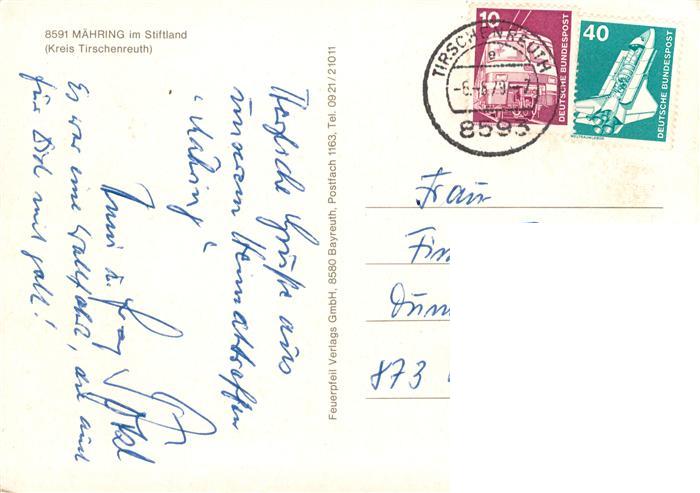 8591 MÄHRING im Stiftland
(Kreis Tirschenreuth)
Herzliche Grüße aus
unserem Heimattreffen
in Mähring!
Es war eine Wallfahrt, die auch
für Dich mit galt!
Feuerpfeil Verlags GmbH, 8580 Bayreuth, Postfach 1163, Tel. 0921/21011
10
DEUTSCHE BUNDESPOST
40
DEUTSCHE BUNDESPOST
WELTRAUMLABOR
TIRSCHENREUTH
8593
Frau
873